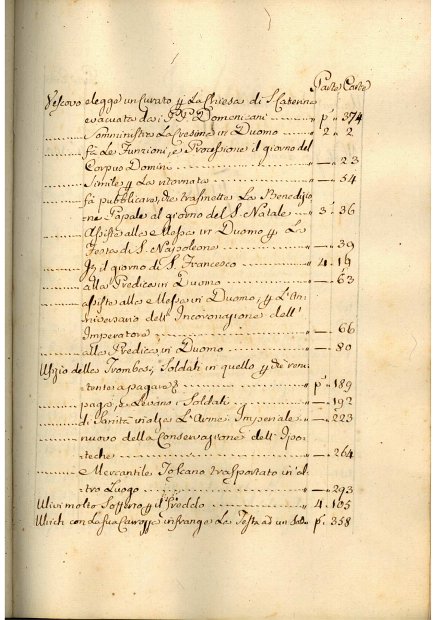 Parte Carte
Vescovo elegge un Curato p La Chiesa di S. Caterina
evacuata da i PP. Domenicani " p.a " 374
Somministra La Cresima in Duomo 2 " 2
fà Le Funzioni, e Processione il giorno del
Corpus Domini " — " 23
Simile p La ritornata " — " 54
fà pubblicare, che trasmette La Benedizio
ne Papale al giorno del S. Natale " 3 " 36
Assiste alla Messa in Duomo p La
Festa di S. Napoleone " — " 39
p il giorno di S. Francesco " 4 " 19
alla Predica in Duomo " — " 63
assiste alla Messa in Duomo, p L'An
niversario dell' Incoronazione dell'
Imperatore " — " 66
alla Predica in Duomo " — " 80
Uffizio delle Trombe, Soldati in quello p chi ren
tente a pagare " p.a " 189
paga, e Levano i Soldati " — " 192
di Sanità inalza L'Arme Imperiale " — " 223
nuovo della Conservazione dell' Ipo
teche " — " 264
Mercantile Toscano trasportato in al
tro Luogo " — " 293
Ulivi molto Sofferto p il freddo " 4 " 105
Ulrich con La sua Carrozza infrange La Testa ad un p.a " 358